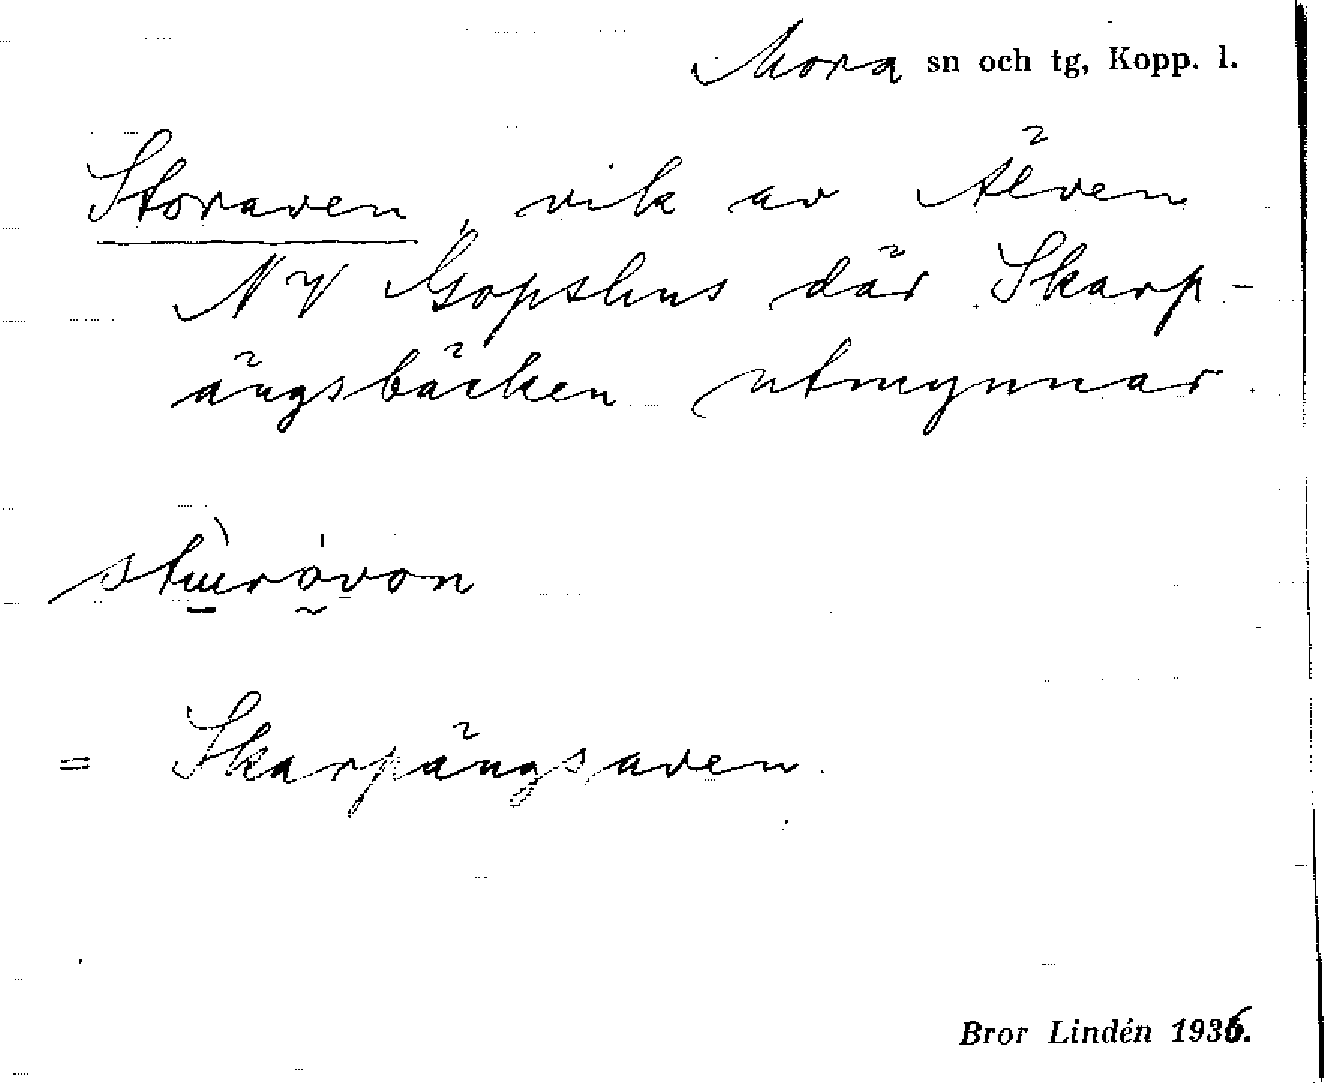 Mora sn och tg, Kopp. l.
Storaven, vik av Älven
NV Gopshus där Skarp-
ängsbäcken utmynnar.
= Skarpängsaven.
Bror Lindén 1936.